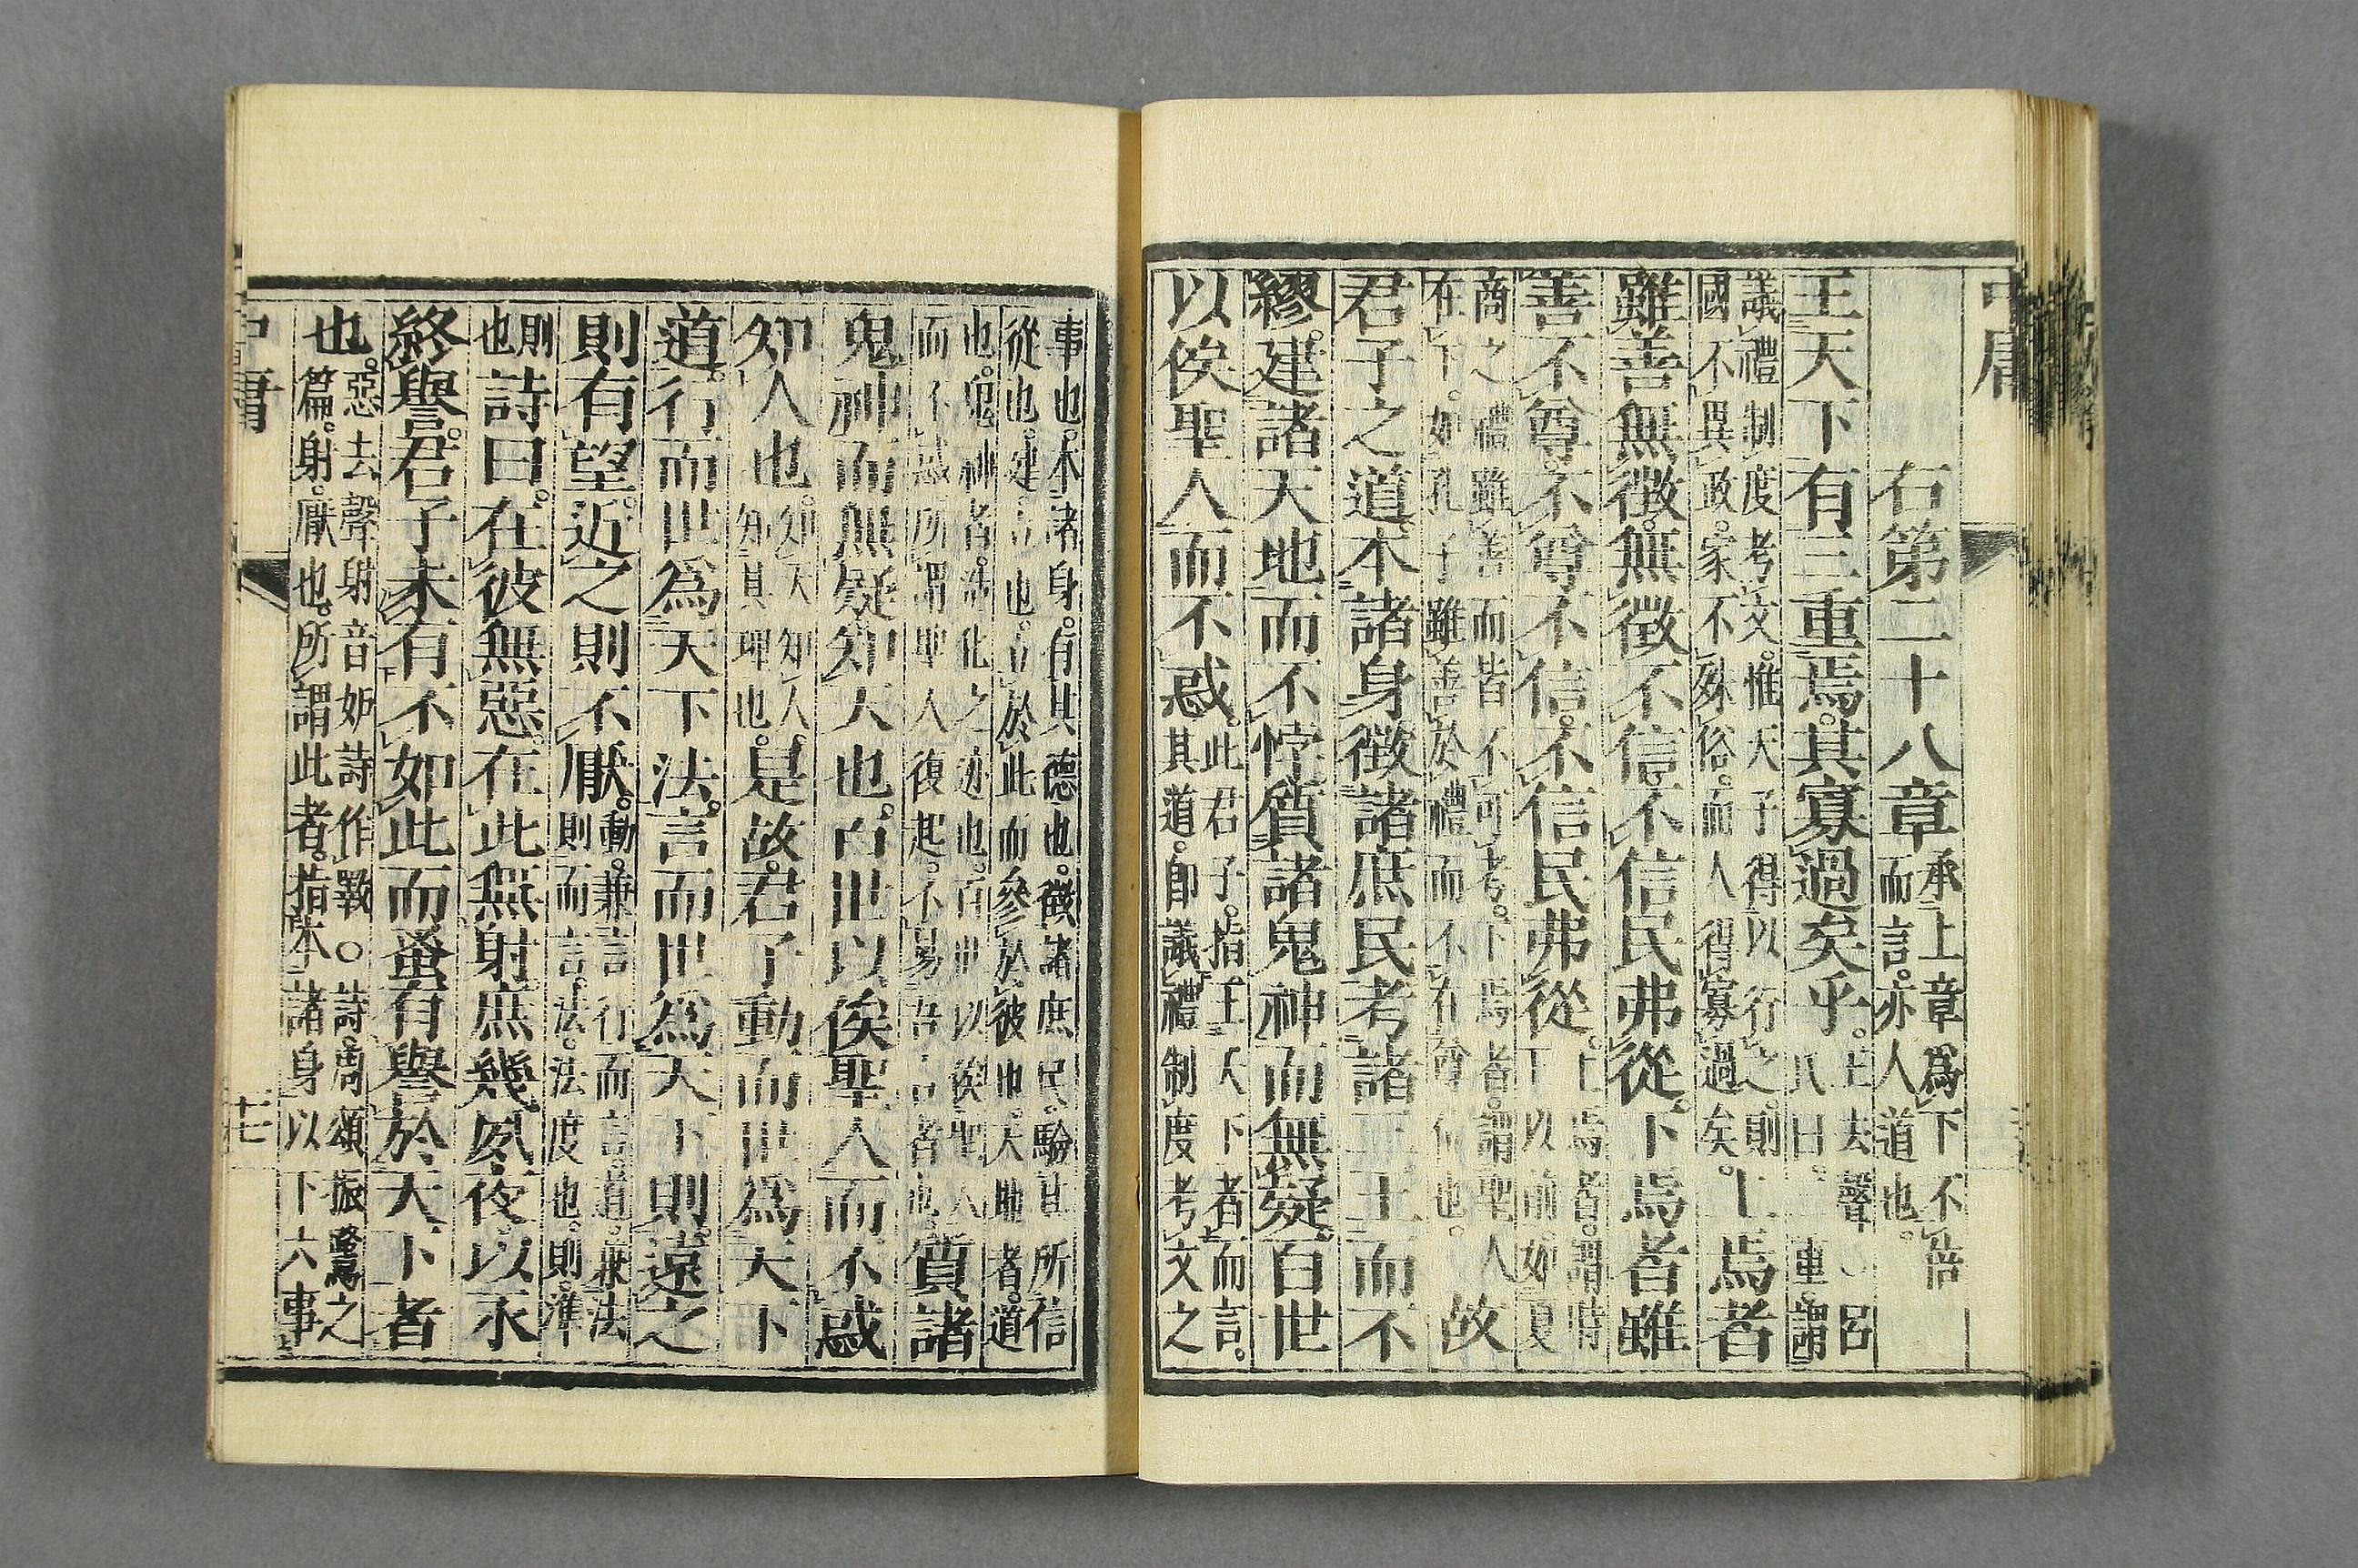 中庸
右第二十八章承上章爲下不倍而言。亦人道也。
王天下有三重焉。其寡過矣乎。王去聲○呂氏曰。三重。謂
議禮制度考文。惟天子得以行之。則國不異政。家不殊俗。而人得寡過矣。上焉者
雖善無徵。無徵不信。不信民弗從。下焉者雖
善不尊。不尊不信。不信民弗從。上焉者。謂時王以前。如夏
商之禮雖善。而皆不可考。下焉者。謂聖人在下。如孔子雖善於禮。而不在尊位也。故
君子之道。本諸身。徵諸庶民。考諸三王而不
繆。建諸天地而不悖。質諸鬼神而無疑。百世
以俟聖人而不惑。此君子。指王天下者而言。其道。即議禮制度考文之
事也。本諸身。有其德也。徵諸庶民。驗其所信從也。建。立也。立於此而參於彼也。天地者。道
也。鬼神者。造化之迹也。百世以俟聖人而不惑。所謂聖人復起。不易吾言者也。質諸
鬼神而無疑。知天也。百世以俟聖人而不惑。
知人也。知天知人。知其理也。是故。君子動而世爲天下
道。行而世爲天下法。言而世爲天下則。遠之
則有望。近之則不厭。動。兼言行而言。道。兼法則而言。法。法度也。則。準
則也詩曰。在彼無惡。在此無射。庶幾夙夜。以永
終譽。君子未有不如此。而蚤有譽於天下者
也。惡去聲射音妒詩作斁○詩周頌振鷺之篇。射。厭也。所謂此者。指本諸身以下六事
中庸
十七